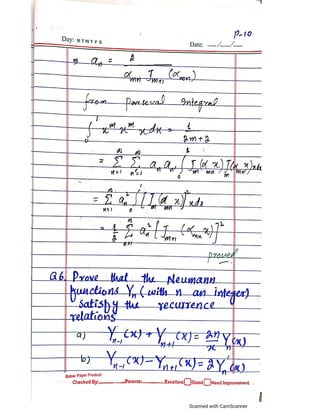 P-10
Day: M T W T F S Date: __/__/__
⇒ a_n = 2 / (α_mn J_{m+1} (α_mn))
from parseval integral
∫_0^1 x^m x^m x dx = 1 / (2m+2)
= Σ_{n=1}^∞ Σ_{n'=1}^∞ a_n a_n' ∫_0^1 J_m(α_mn x) J_m(α_mn' x) x dx
= Σ_{n=1}^∞ a_n^2 ∫_0^1 [J_m(α_mn x)]^2 x dx
= 1/2 Σ_{n=1}^∞ a_n^2 [J_{m+1} (α_mn x)]^2
proved
Q6. Prove that the Neumann
functions Y_n (with n an integer)
satisfy the recurrence
relations
a) Y_{n-1}(x) + Y_{n+1}(x) = 2n/x Y_n(x)
b) Y_{n-1}(x) - Y_{n+1}(x) = 2 Y'_n(x)
Paper Product
Checked By: Parents: Excellent Good Need Improvement
Scanned with CamScanner